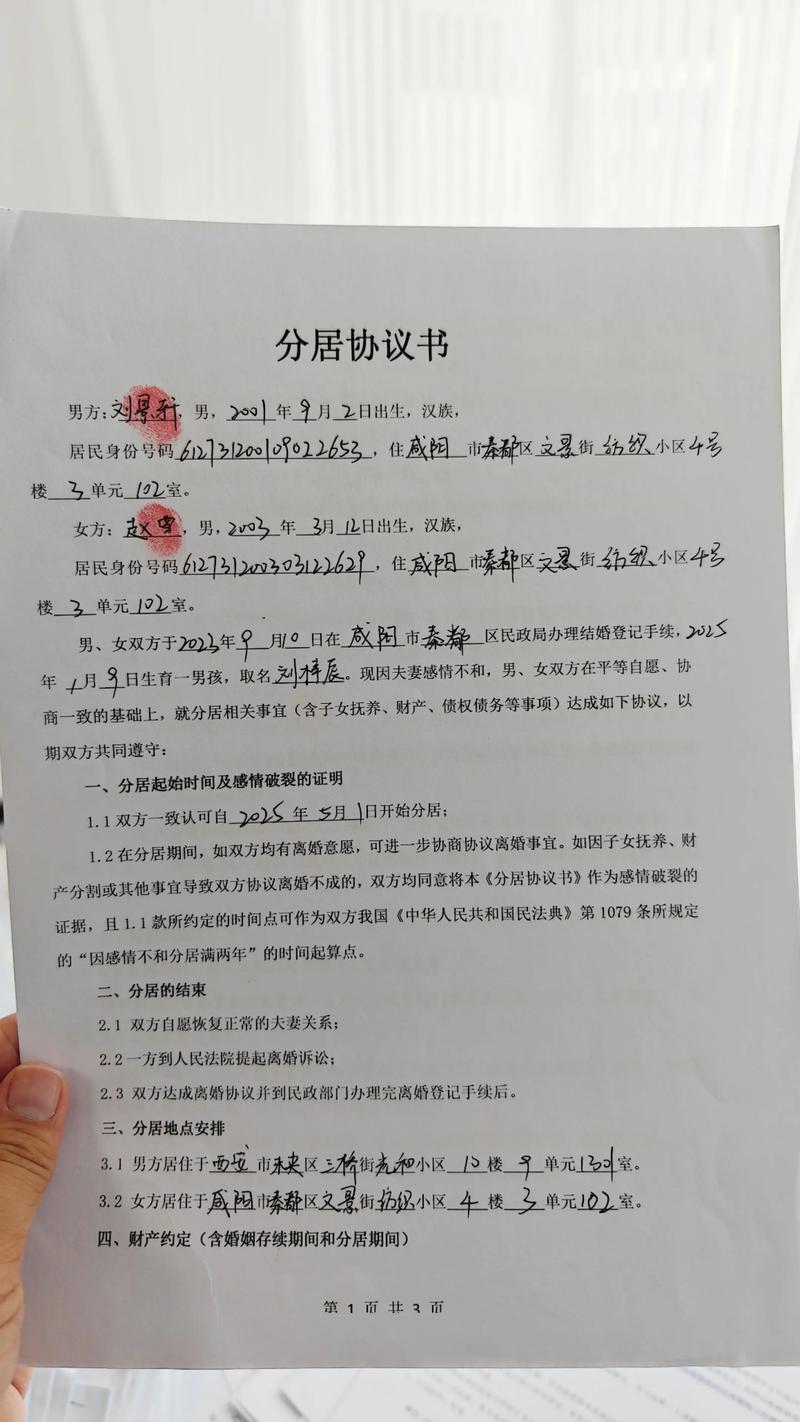 分居协议书
男方：刘景轩，男，2001年9月2日出生，汉族，
居民身份号码612731200109022653，住咸阳市秦都区文景街纺织小区4号
楼3单元102室。
女方：赵雪，男，2003年3月12日出生，汉族，
居民身份号码612731200303122629，住咸阳市秦都区文景街纺织小区4号
楼3单元102室。
男、女双方于2023年9月10日在咸阳市秦都区民政局办理结婚登记手续，2025
年1月9日生育一男孩，取名刘梓辰。现因夫妻感情不和，男、女双方在平等自愿、协
商一致的基础上，就分居相关事宜（含子女抚养、财产、债权债务等事项）达成如下协议，以
期双方共同遵守：
一、分居起始时间及感情破裂的证明
1.1双方一致认可自2025年5月1日开始分居；
1.2在分居期间，如双方均有离婚意愿，可进一步协商协议离婚事宜。如因子女抚养、财
产分割或其他事宜导致双方协议离婚不成的，双方均同意将本《分居协议书》作为感情破裂的
证据，且1.1款所约定的时间点可作为双方我国《中华人民共和国民法典》第1079条所规定
的“因感情不和分居满两年”的时间起算点。
二、分居的结束
2.1 双方自愿恢复正常的夫妻关系；
2.2一方到人民法院提起离婚诉讼；
2.3 双方达成离婚协议并到民政部门办理完离婚登记手续后。
三、分居地点安排
3.1 男方居住于西安市未央区三桥街光和小区10楼9单元1301室。
3.2 女方居住于咸阳市秦都区文景街纺织小区4楼3单元102室。
四、财产约定（含婚姻存续期间和分居期间）
第1页共3页